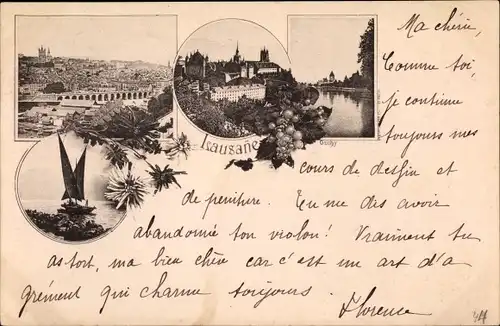 Ma chérie,
Comme toi,
je continue
toujours mes
Lausanne
Ouchy
cours de dessin et
de peinture. Tu me dis avoir
abandonnée ton violon! Vraiment tu
as tort, ma bien chère car c'est un art d'a
grément qui charme toujours
Florence